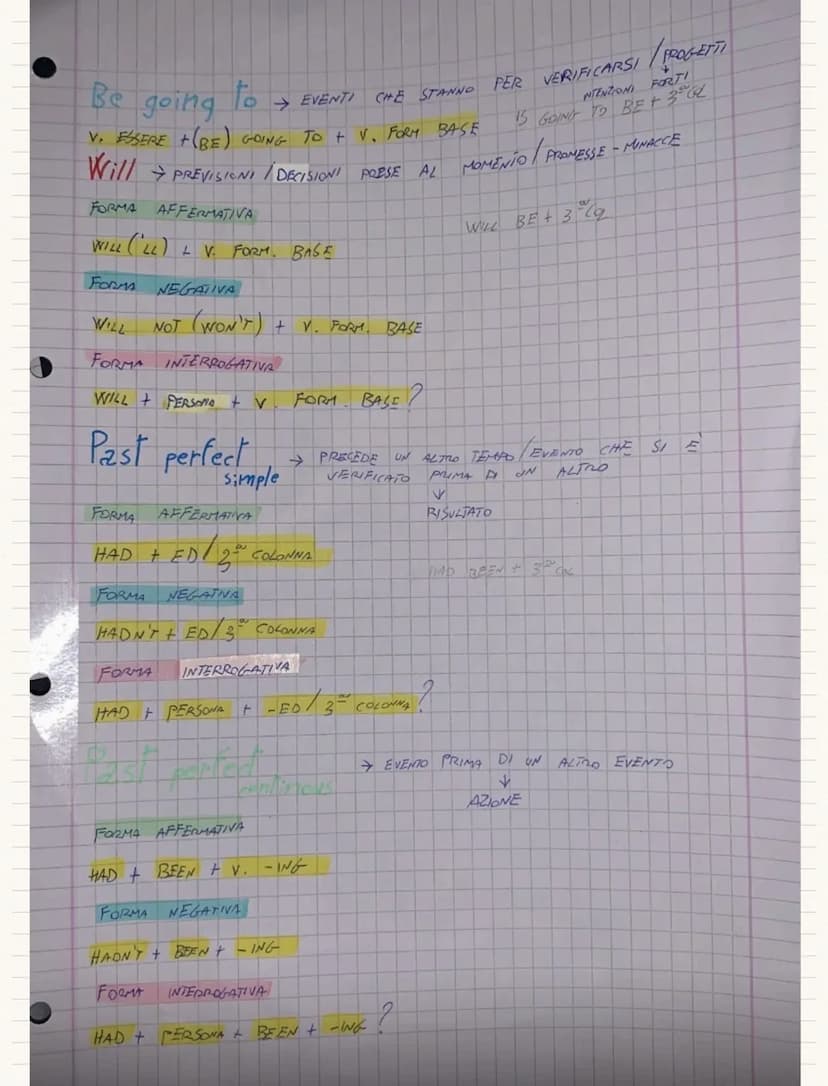 Be going to → EVENTI CHE STANNO PER VERIFICARSI / PROGETTI
↓
INTENZIONI FORTI
V. ESSERE + (BE) GOING TO + V. FORM BASE
IS GOING TO BE + 3ª COL
Will → PREVISIONI / DECISIONI PRESE AL MOMENTO / PROMESSE - MINACCE
FORMA AFFERMATIVA
WILL BE + 3ª CQ
WILL ('LL) + V. FORM. BASE
FORMA NEGATIVA
WILL NOT (WON'T) + V. FORM. BASE
FORMA INTERROGATIVA
WILL + PERSONA + V. FORM. BASE?
Past perfect simple → PRECEDE UN ALTRO TEMPO / EVENTO CHE SI È
VERIFICATO PRIMA DI UN ALTRO
↓
RISULTATO
FORMA AFFERMATIVA
HAD + ED / 3ª COLONNA
HAD BEEN + 3ª COL
FORMA NEGATIVA
HADN'T + ED / 3ª COLONNA
FORMA INTERROGATIVA
HAD + PERSONA + -ED / 3ª COLONNA?
Past perfect continous → EVENTO PRIMA DI UN ALTRO EVENTO
↓
AZIONE
FORMA AFFERMATIVA
HAD + BEEN + V. -ING
FORMA NEGATIVA
HADN'T + BEEN + -ING
FORMA INTERROGATIVA
HAD + PERSONA + BEEN + -ING?